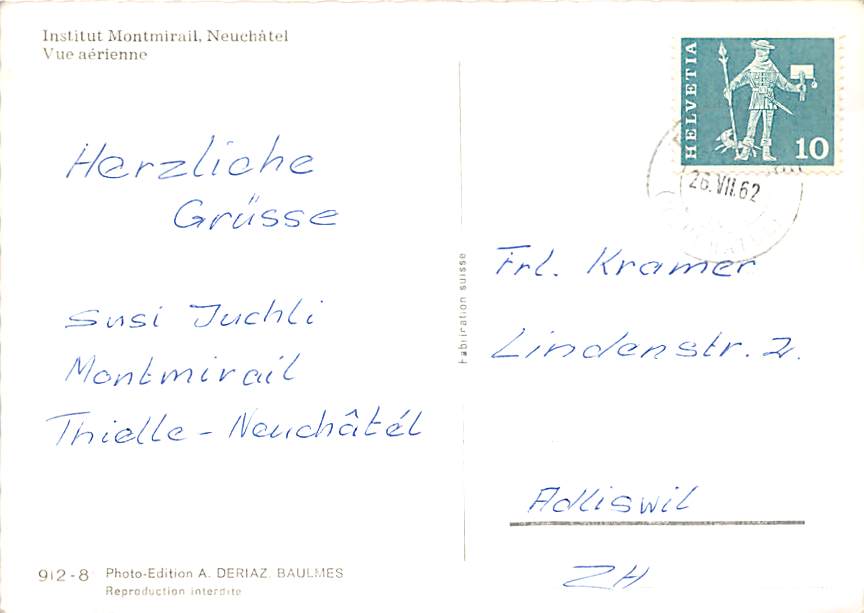 Institut Montmirail, Neuchâtel
Vue aérienne
Herzliche
Grüsse
Susi Juchli
Montmirail
Thielle - Neuchâtél
912-8 Photo-Edition A. DERIAZ. BAULMES
Reproduction interdite
Fabrication suisse
HELVETIA
10
26.VII.62
Frl. Kramer
Lindenstr. 2.
Adliswil
ZH